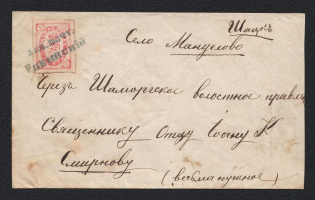 Шацкъ
Зав. почт.
Село Манцелово
Черезъ Шаморгское волостное правл
Священнику Отцу Іоану К
Смирнову
(весьма нужное)